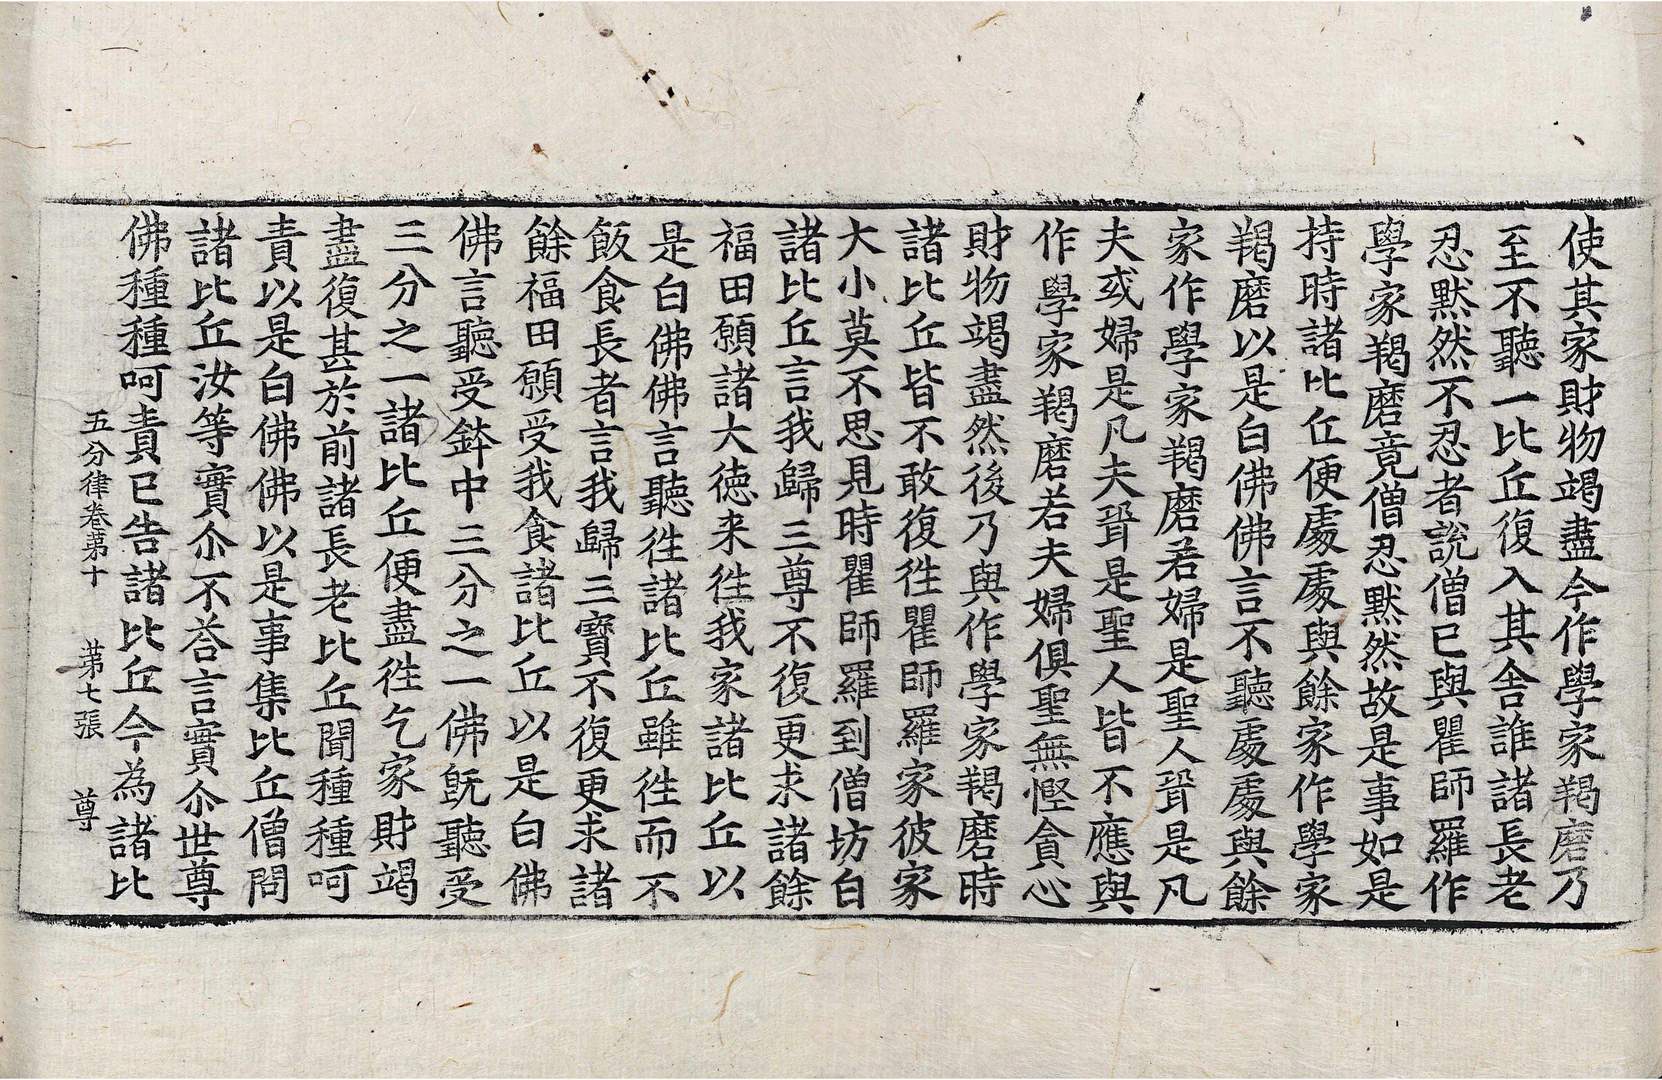 使其家財物竭盡今作學家羯磨乃
至不聽一比丘復入其舍誰諸長老
忍默然不忍者說僧已與瞿師羅作
學家羯磨竟僧忍默然故是事如是
持時諸比丘便處處與餘家作學家
羯磨以是白佛佛言不聽處處與餘
家作學家羯磨若婦是聖人聟是凡
夫或婦是凡夫聟是聖人皆不應與
作學家羯磨若夫婦俱聖無慳貪心
財物竭盡然後乃與作學家羯磨時
諸比丘皆不敢復徃瞿師羅家彼家
大小莫不思見時瞿師羅到僧坊白
諸比丘言我歸三尊不復更求諸餘
福田願諸大德来徃我家諸比丘以
是白佛佛言聽徃諸比丘雖徃而不
飯食長者言我歸三寳不復更求諸
餘福田願受我食諸比丘以是白佛
佛言聽受鉢中三分之一佛旣聽受
三分之一諸比丘便盡徃乞家財竭
盡復甚於前諸長老比丘聞種種呵
責以是白佛佛以是事集比丘僧問
諸比丘汝等實尒不荅言實尒世尊
佛種種呵責已告諸比丘今為諸比
五分律卷第十　第七張　尊